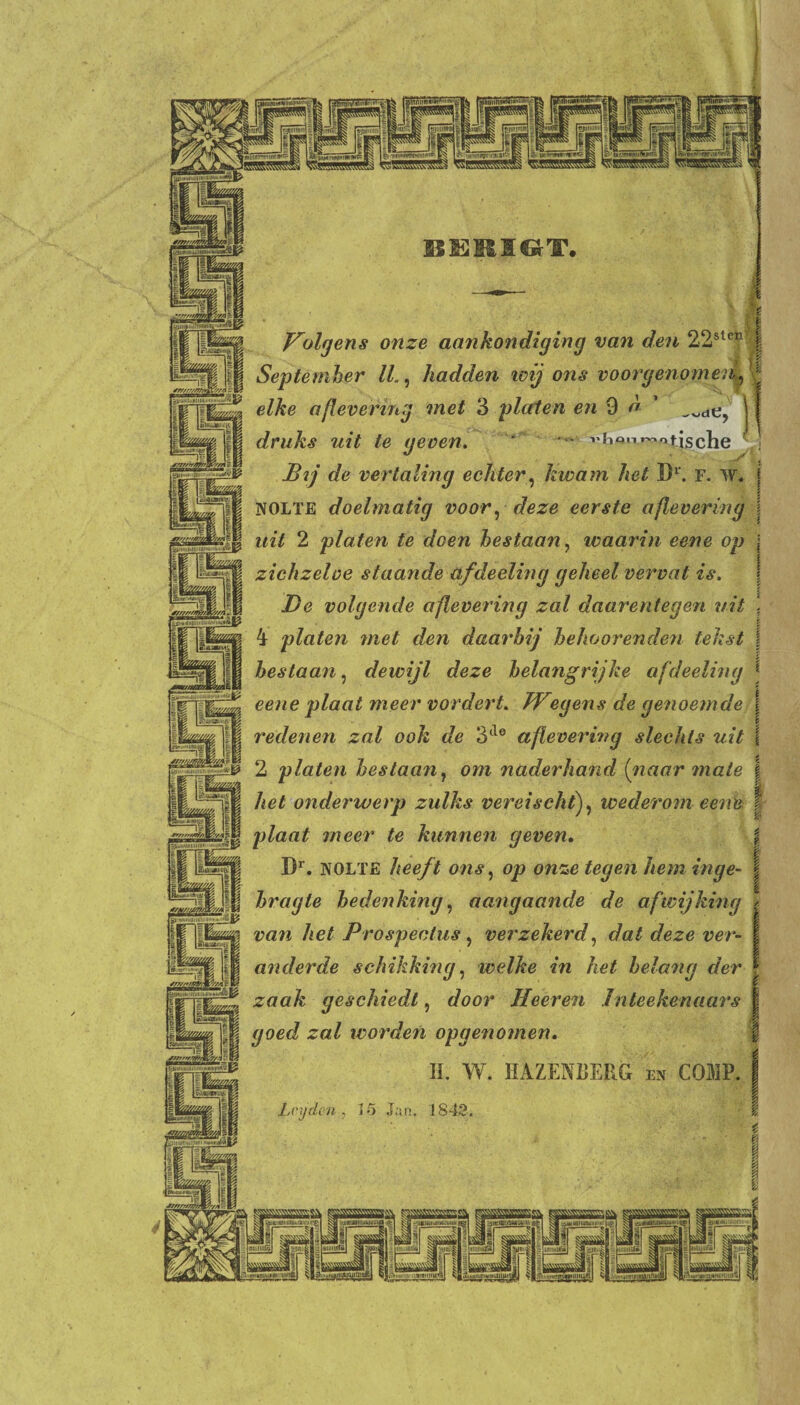 BERIGT.
Volgens onze aankondiging van den 22sten
September ll., hadden wij ons voorgenomen,
elke aflevering met 3 platen en 9 à
druks uit te geven. tische
Bij de vertaling echter, kwam het Dr. F. W.
NOLTE doelmatig voor, deze eerste aflevering
uit 2 platen te doen bestaan, waarin eene op
zichzelve staande afdeeling geheel vervat is.
De volgende aflevering zal daarentegen uit
4 platen met den daarbij behoorenden tekst
bestaan, dewijl deze belangrijke afdeeling
eene plaat meer vordert. Wegens de genoemde
redenen zal ook de 3de aflevering slechts uit
2 platen bestaan, om naderhand (naar mate
het onderwerp zulks vereischt), wederom eene
plaat meer te kunnen geven.
Dr. NOLTE heeft ons, op onze tegen hem inge-
bragte bedenking, aangaande de afwijking
van het Prospectus, verzekerd, dat deze ver-
anderde schikking, welke in het belang der
zaak geschiedt, door Heeren Inteekenaars
goed zal worden opgenomen.
H. W. HAZENBERG EN COMP.
Leyden, 15 Jan. 1842.